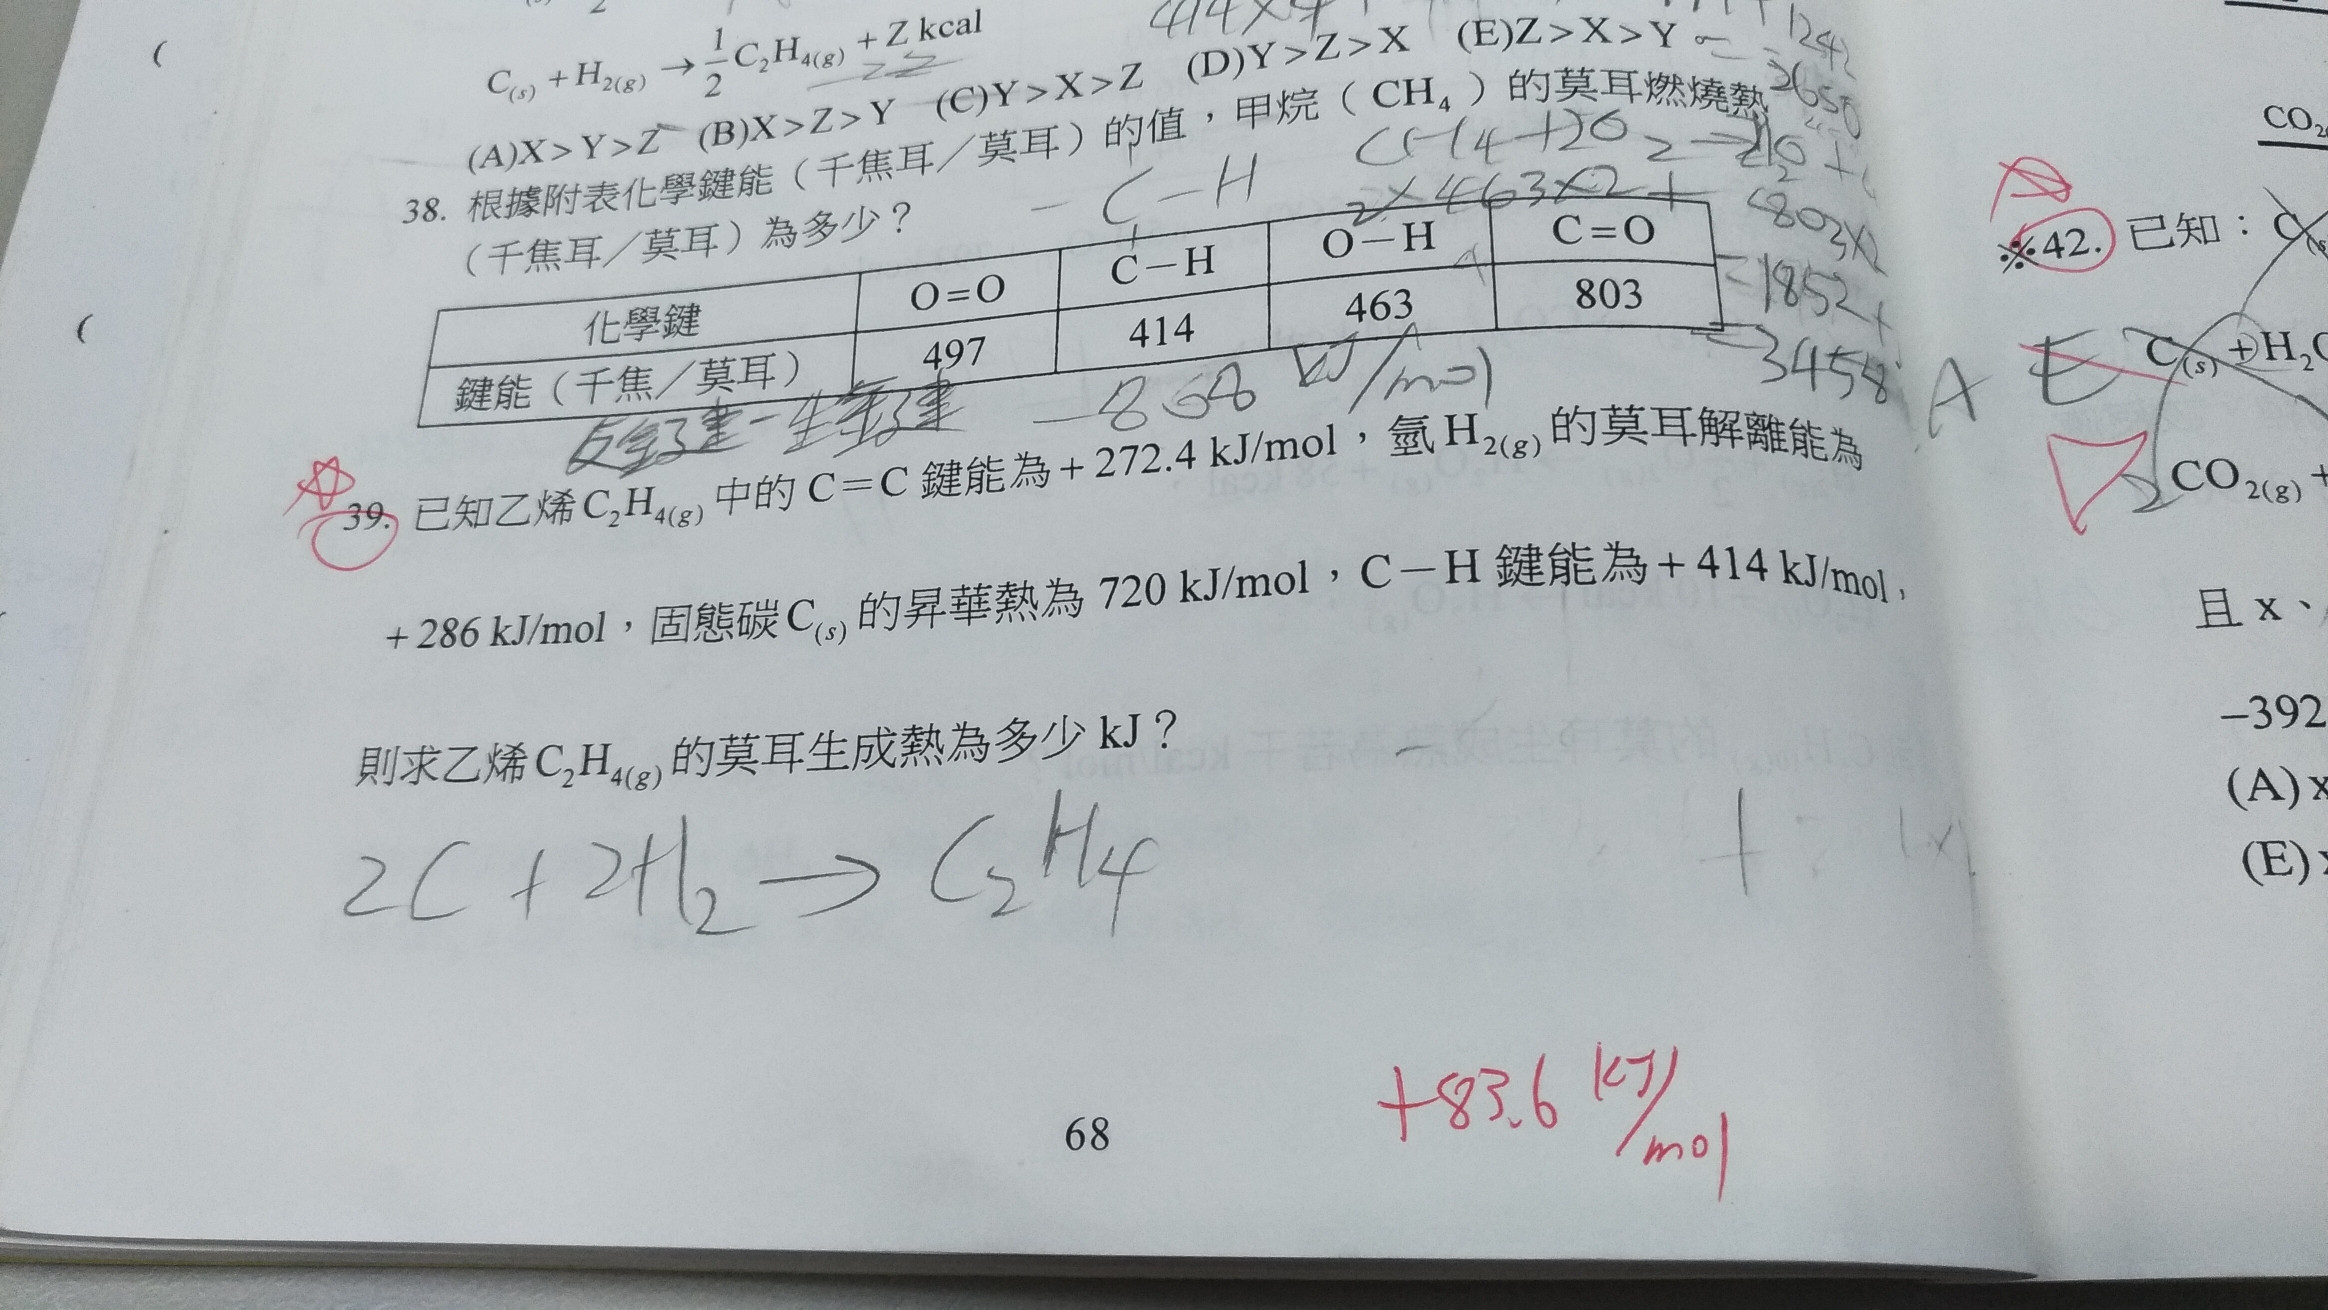 C(s) + H2(g) → 1/2 C2H4(g) + Z kcal
(A)X>Y>Z (B)X>Z>Y (C)Y>X>Z (D)Y>Z>X (E)Z>X>Y
38. 根據附表化學鍵能（千焦耳／莫耳）的值，甲烷（CH4）的莫耳燃燒熱
（千焦耳／莫耳）為多少？
C－H
2×463×2+
803×2
=1852+
=3458
化學鍵 O=O C－H O－H C=O
鍵能（千焦／莫耳） 497 414 463 803
－868 kJ/mol
39. 已知乙烯C2H4(g)中的 C=C 鍵能為+272.4 kJ/mol，氫H2(g)的莫耳解離能為
+286 kJ/mol，固態碳C(s)的昇華熱為 720 kJ/mol，C－H 鍵能為+414 kJ/mol，
則求乙烯C2H4(g)的莫耳生成熱為多少 kJ？
2C + 2H2 → C2H4
+83.6 kJ/mol
68
CO2
A E
※42. 已知：C(s
C(s) +H2
CO2(g) +
且 x、
–392
(A) x
(E)